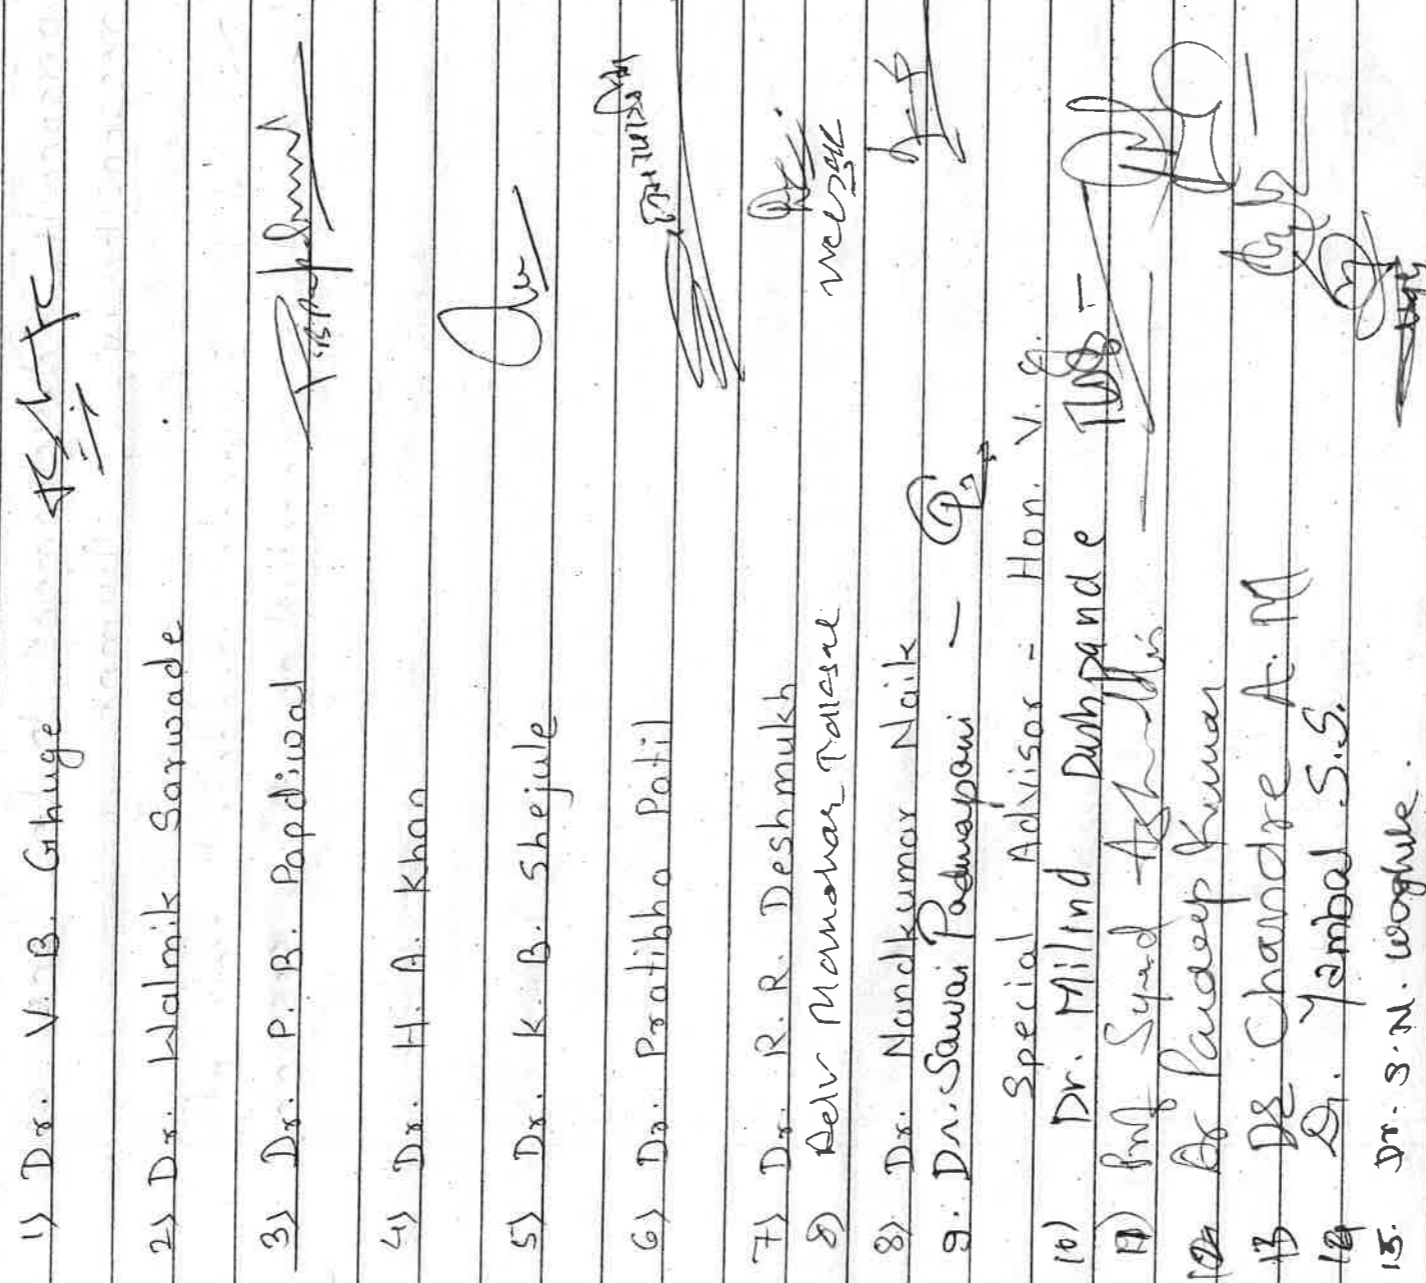 1) Dr. V. B. Ghuge
2) Dr. Walmik Sarwade
3) Dr. P. B. Papdiwal
4) Dr. H. A. Khan
5) Dr. K. B. Shejule
6) Dr. Pratibha Patil
7) Dr. R. R. Deshmukh
8) Adv Manohar
8) Dr. Nandkumar Naik
9. Dr. Sawai Padmapani —
Special Advisor - Hon. V. C.
10) Dr. Milind Deshpande
11) Prof Syed
12) Dr Pardeep Kumar
13 Dr Chandre A. M
14 Dr. Yambal S.S.
15. Dr. S. N. Waghule.